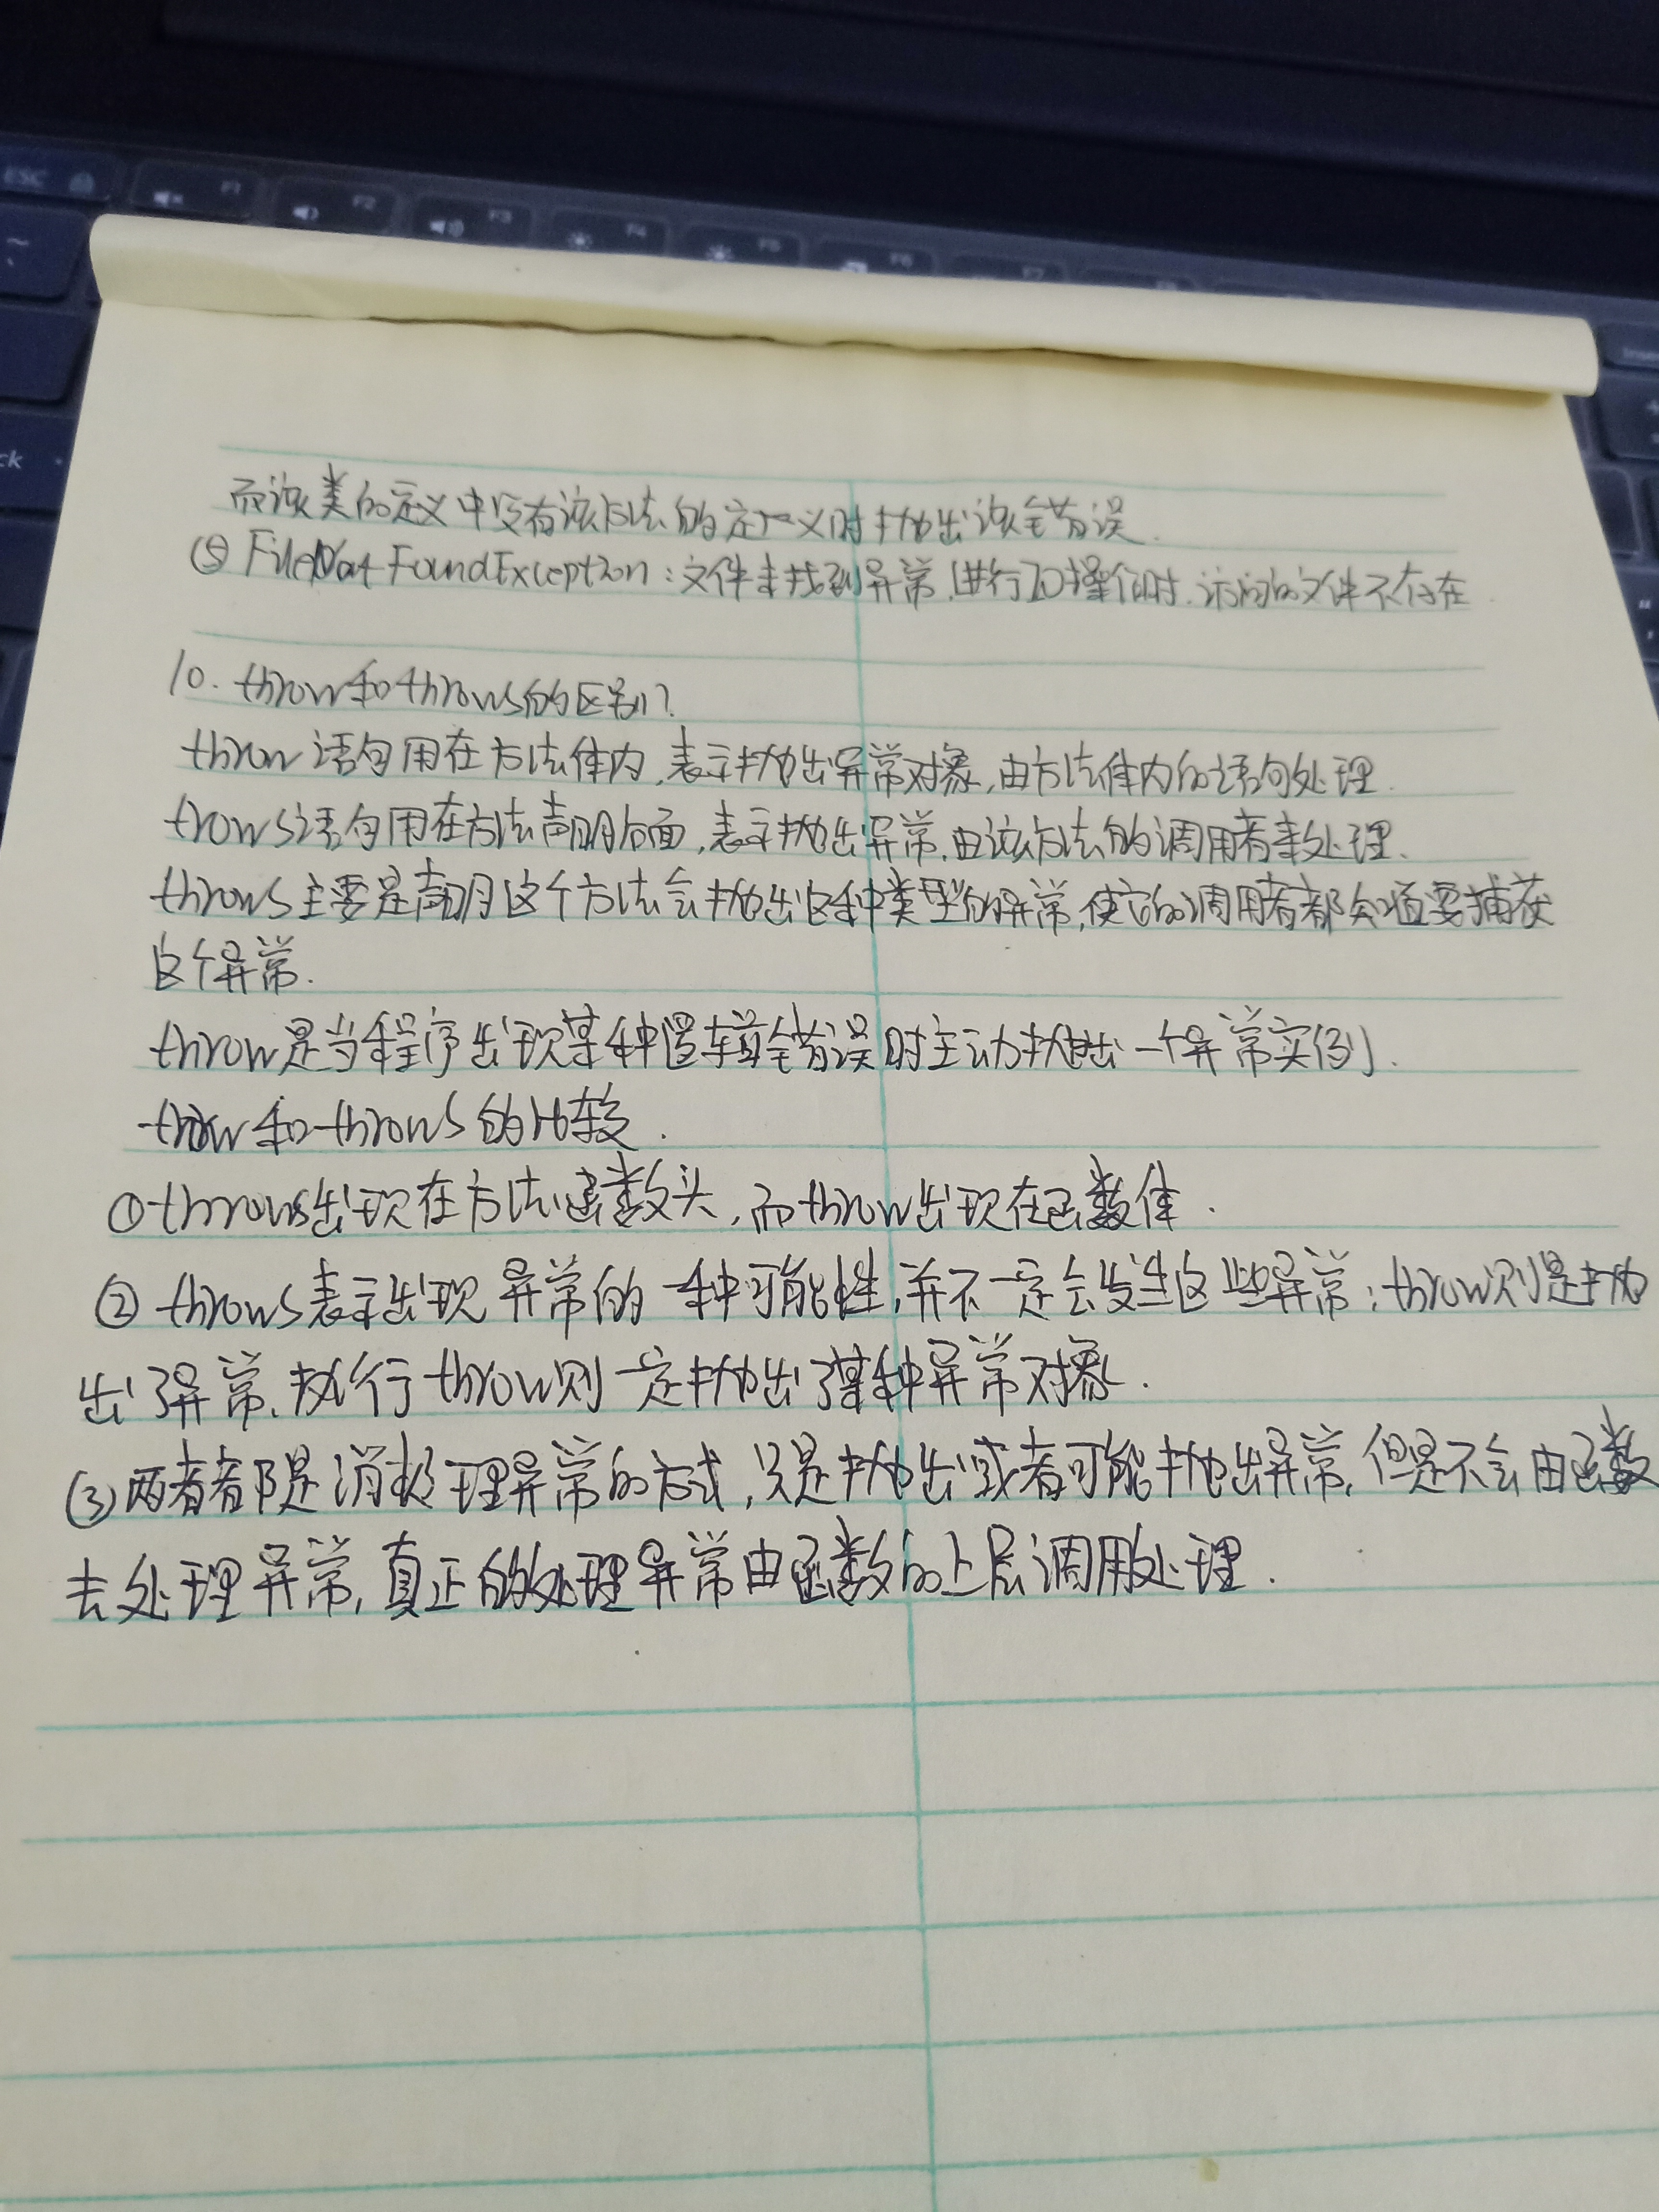 ESC
F1
F2
F3
F4
F5
F6
F7
ck
而该类的定义中没有该方法的定义时抛出该错误.
⑤ FileNotFoundException:文件未找到异常,进行IO操作时.访问的文件不存在.
10. throw和throws的区别?
throw语句用在方法体内,表示抛出异常对象,由方法体内的语句处理.
trows语句用在方法声明后面,表示抛出异常,由该方法的调用者来处理.
throws主要是声明这个方法会抛出这种类型的异常,使它的调用者都知道要捕获
这个异常.
throw是当程序出现某种逻辑错误时主动抛出一个异常实例.
throw和throws的比较.
①throws出现在方法函数头,而throw出现在函数体.
② throws表示出现异常的一种可能性,并不一定会发生这些异常;throw则是抛
出了异常,执行throw则一定抛出了某种异常对象.
③两者都是消极处理异常的方式,只是抛出或者可能抛出异常,但是不会由函数
去处理异常,真正的处理异常由函数的上层调用处理.